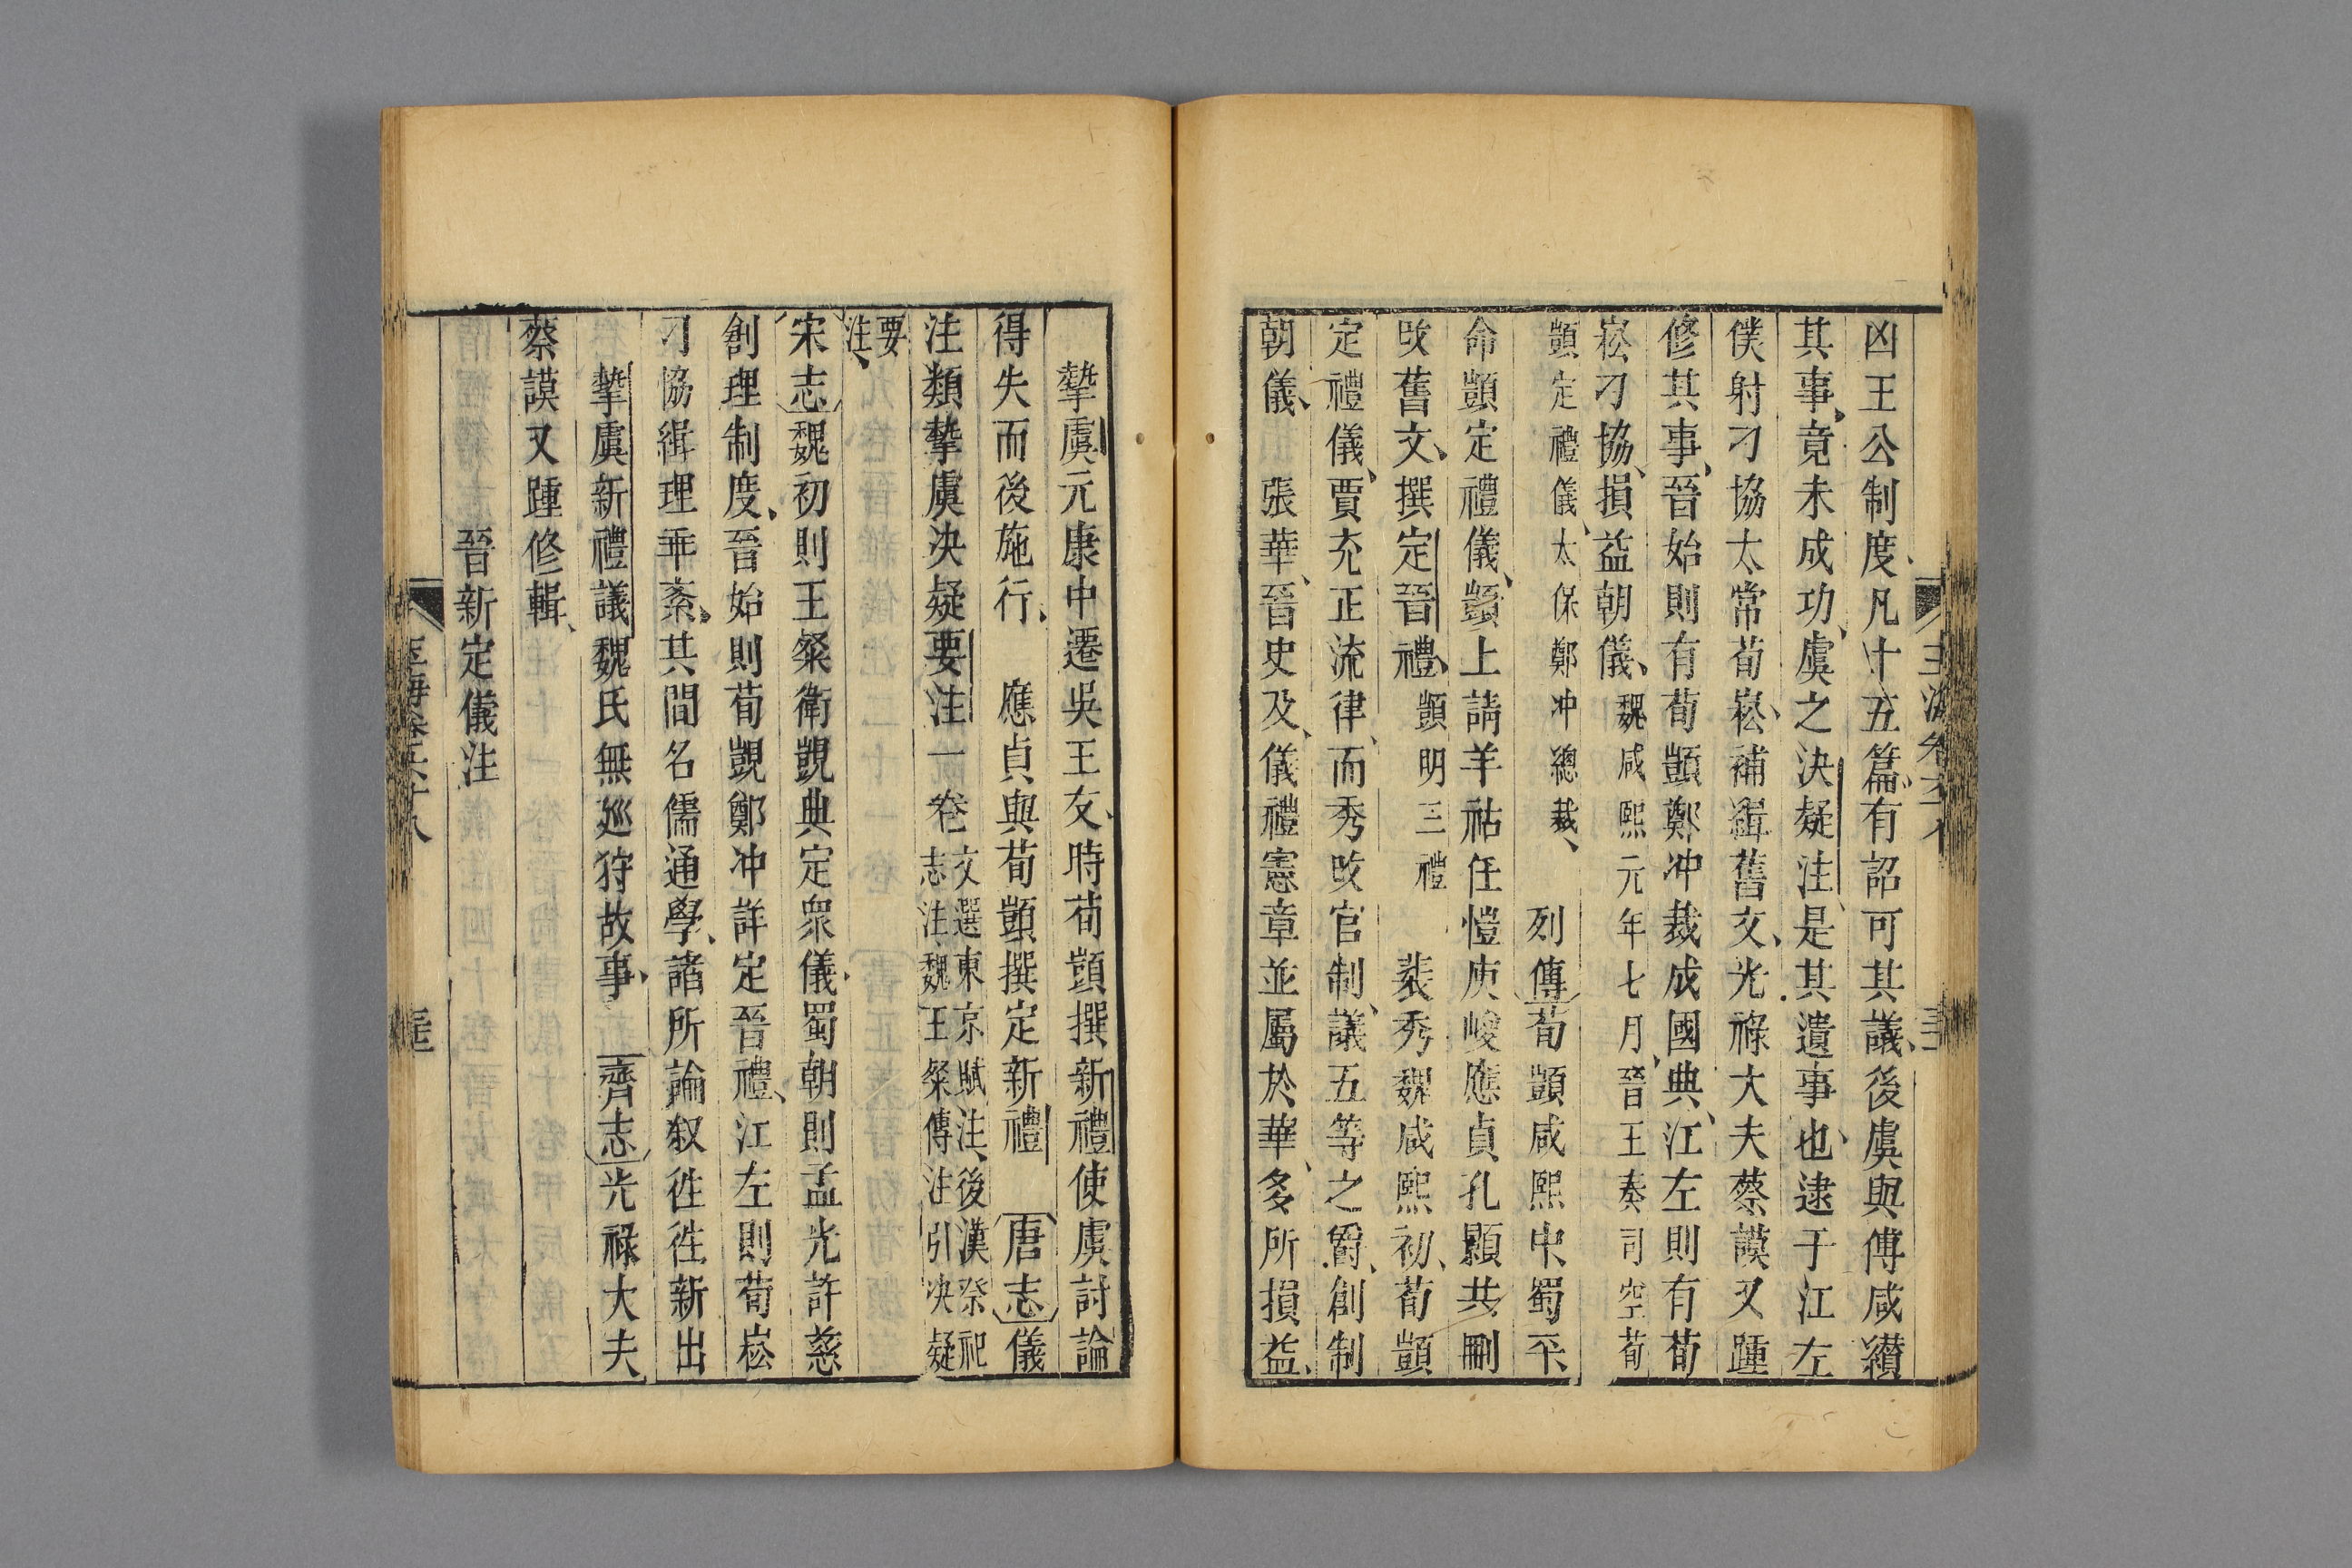 凶王公制度、凡十五篇、有詔可其議、後虞與傅咸纘
其事、竟未成功、虞之決疑注、是其遺事也、逮于江左
僕射刁協太常荀崧、補緝舊文、光祿大夫蔡謨又踵
修其事、晉始則有荀顗鄭冲裁成國典、江左則有荀
崧刁協、損益朝儀、魏咸熙元年七月、晉王奏司空荀
顗定禮儀、太保鄭冲總裁、 列傳荀顗咸熙中、蜀平
命顗定禮儀、顗上請羊祜任愷庾峻應貞孔顥共刪
改舊文、撰定晉禮、顗明三禮 裴秀魏咸熙初、荀顗
定禮儀、賈充正流律、而秀改官制、議五等之爵、創制
朝儀、 張華、晉史及、儀禮憲章並屬於華、多所損益、
摯虞元康中遷吳王友、時荀顗撰新禮使虞討論
得失而後施行、 應貞與荀顗撰定新禮 唐志儀
注類摯虞決疑要注一卷文選東京賦注、後漢祭祀
志注、魏王粲傳注引決疑
要
注、
宋志魏初則王粲衛覬典定衆儀、蜀朝則孟光許慈
創理制度、晉始則荀覬鄭冲詳定晉禮、江左則荀崧
刁協緝理乖紊、其間名儒通學、諸所論叙徃徃新出
摯虞新禮議魏氏無巡狩故事、 齊志光祿大夫
蔡謨又踵修輯、
晉新定儀注